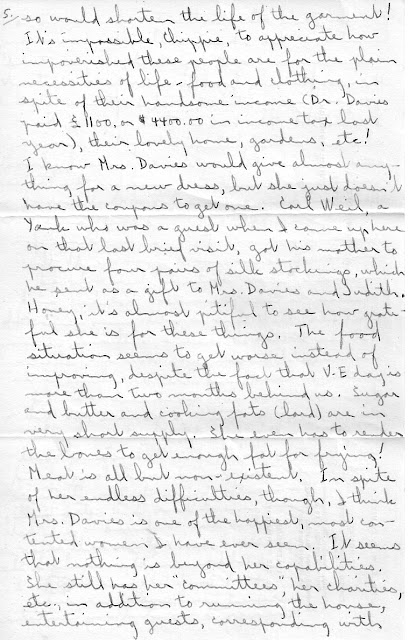 5.
so would shorten the life of the garment!
It's impossible, Chippie, to appreciate how
impoverished these people are for the plain
necessities of life - food and clothing, in
spite of their handsome income (Dr. Davies
paid £1100, or $4400.00 in income tax last
year), their lovely home, gardens, etc!
I know Mrs. Davies would give almost any-
thing for a new dress, but she just doesn't
have the coupons to get one. Carl Weil, a
Yank who was a guest when I came up here
on that last brief visit, got his mother to
procure four pairs of silk stockings, which
he sent as a gift to Mrs. Davies and Judith.
Honey, it's almost pitiful to see how grate-
ful she is for these things. The food
situation seems to get worse instead of
improving, despite the fact that V-E day is
more than two months behind us. Sugar
and butter and cooking fats (lard) are in
very short supply. She even has to render
the bones to get enough fat for frying!
Meat is all but non-existent. In spite
of her endless difficulties, though, I think
Mrs. Davies is one of the happiest, most con-
tented women I have ever seen. It seems
that nothing is beyond her capabilities.
She still has her "committees", her charities,
etc., in addition to running the house,
entertaining guests, corresponding with